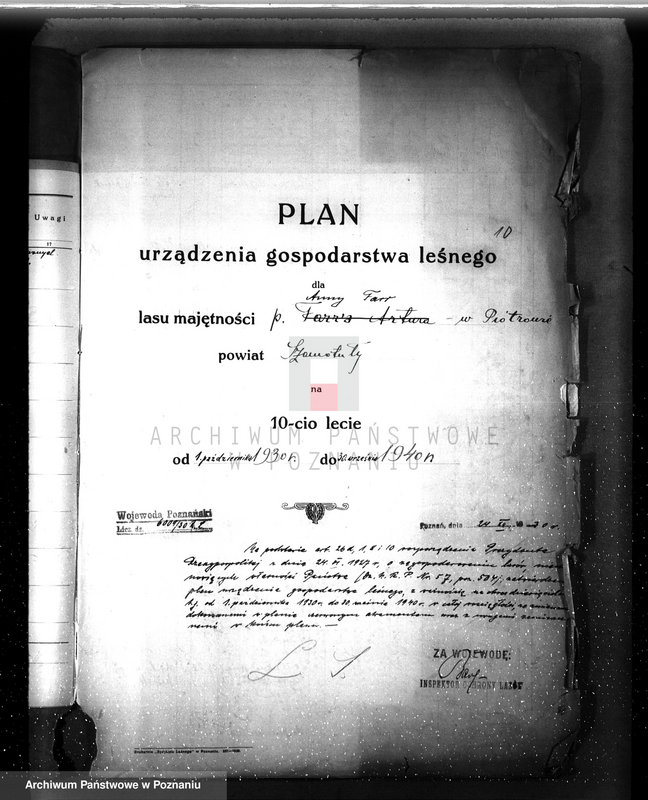 Uwagi
17
10
PLAN
urządzenia gospodarstwa leśnego
dla
Anny Farr
lasu majętności p. Farr'a Artura - w Piotrowie
powiat Szamotuły
na
10-cio lecie
ARCHIWUM PAŃSTWOWE
W POZNANIU
od 1 października 1930 r. do 30 września 1940 r
Wojewoda Poznański
Lcz. dz. 6001/30
Poznań, dnia 24 30 r.
Na podstawie art. 26d, 1, 8 i 10 rozporządzenia Prezydenta
Rzeczypospolitej z dnia 24. VI. 1927 r. o zagospodarowaniu lasów, nie
Państwa (Dz. U. R. P. Nr. 57, poz. 504),
plan urządzenia gospodarstwa leśnego, z ważnością na okres dziesięciolecia
t.j. od 1. października 1930 r. do 30 września 1940 r. w całej rozciągłości, ze zmianami
dokonanemi w planie czerwonym atramentem oraz z
w planie. —
L. S.
ZA WOJEWODĘ:
INSPEKTOR OCHRONY LASÓW
Archiwum Państwowe w Poznaniu